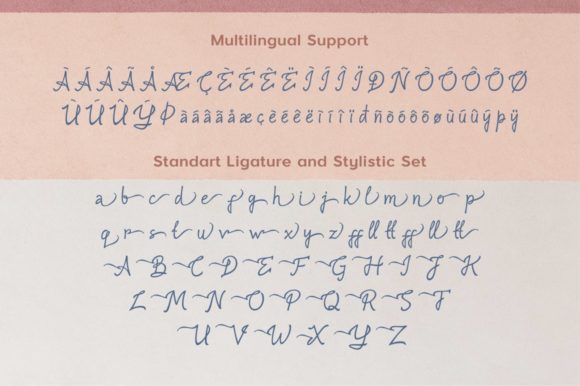 Multilingual Support
ÀÁÂÃÅÆÇÈÉÊËÌÍÎÏĐÑÒÓÔÕØ
ÙÚÛÝÞàáâãåæçèéêëìíîïđñòóôõøùúûýþÿ
Standart Ligature and Stylistic Set
a b c d e f g h i j k l m n o p
q r s t u v w x y z ff ll tt ff ll tt
A B C D E F G H I J K
L M N O P Q R S T
U V W X Y Z